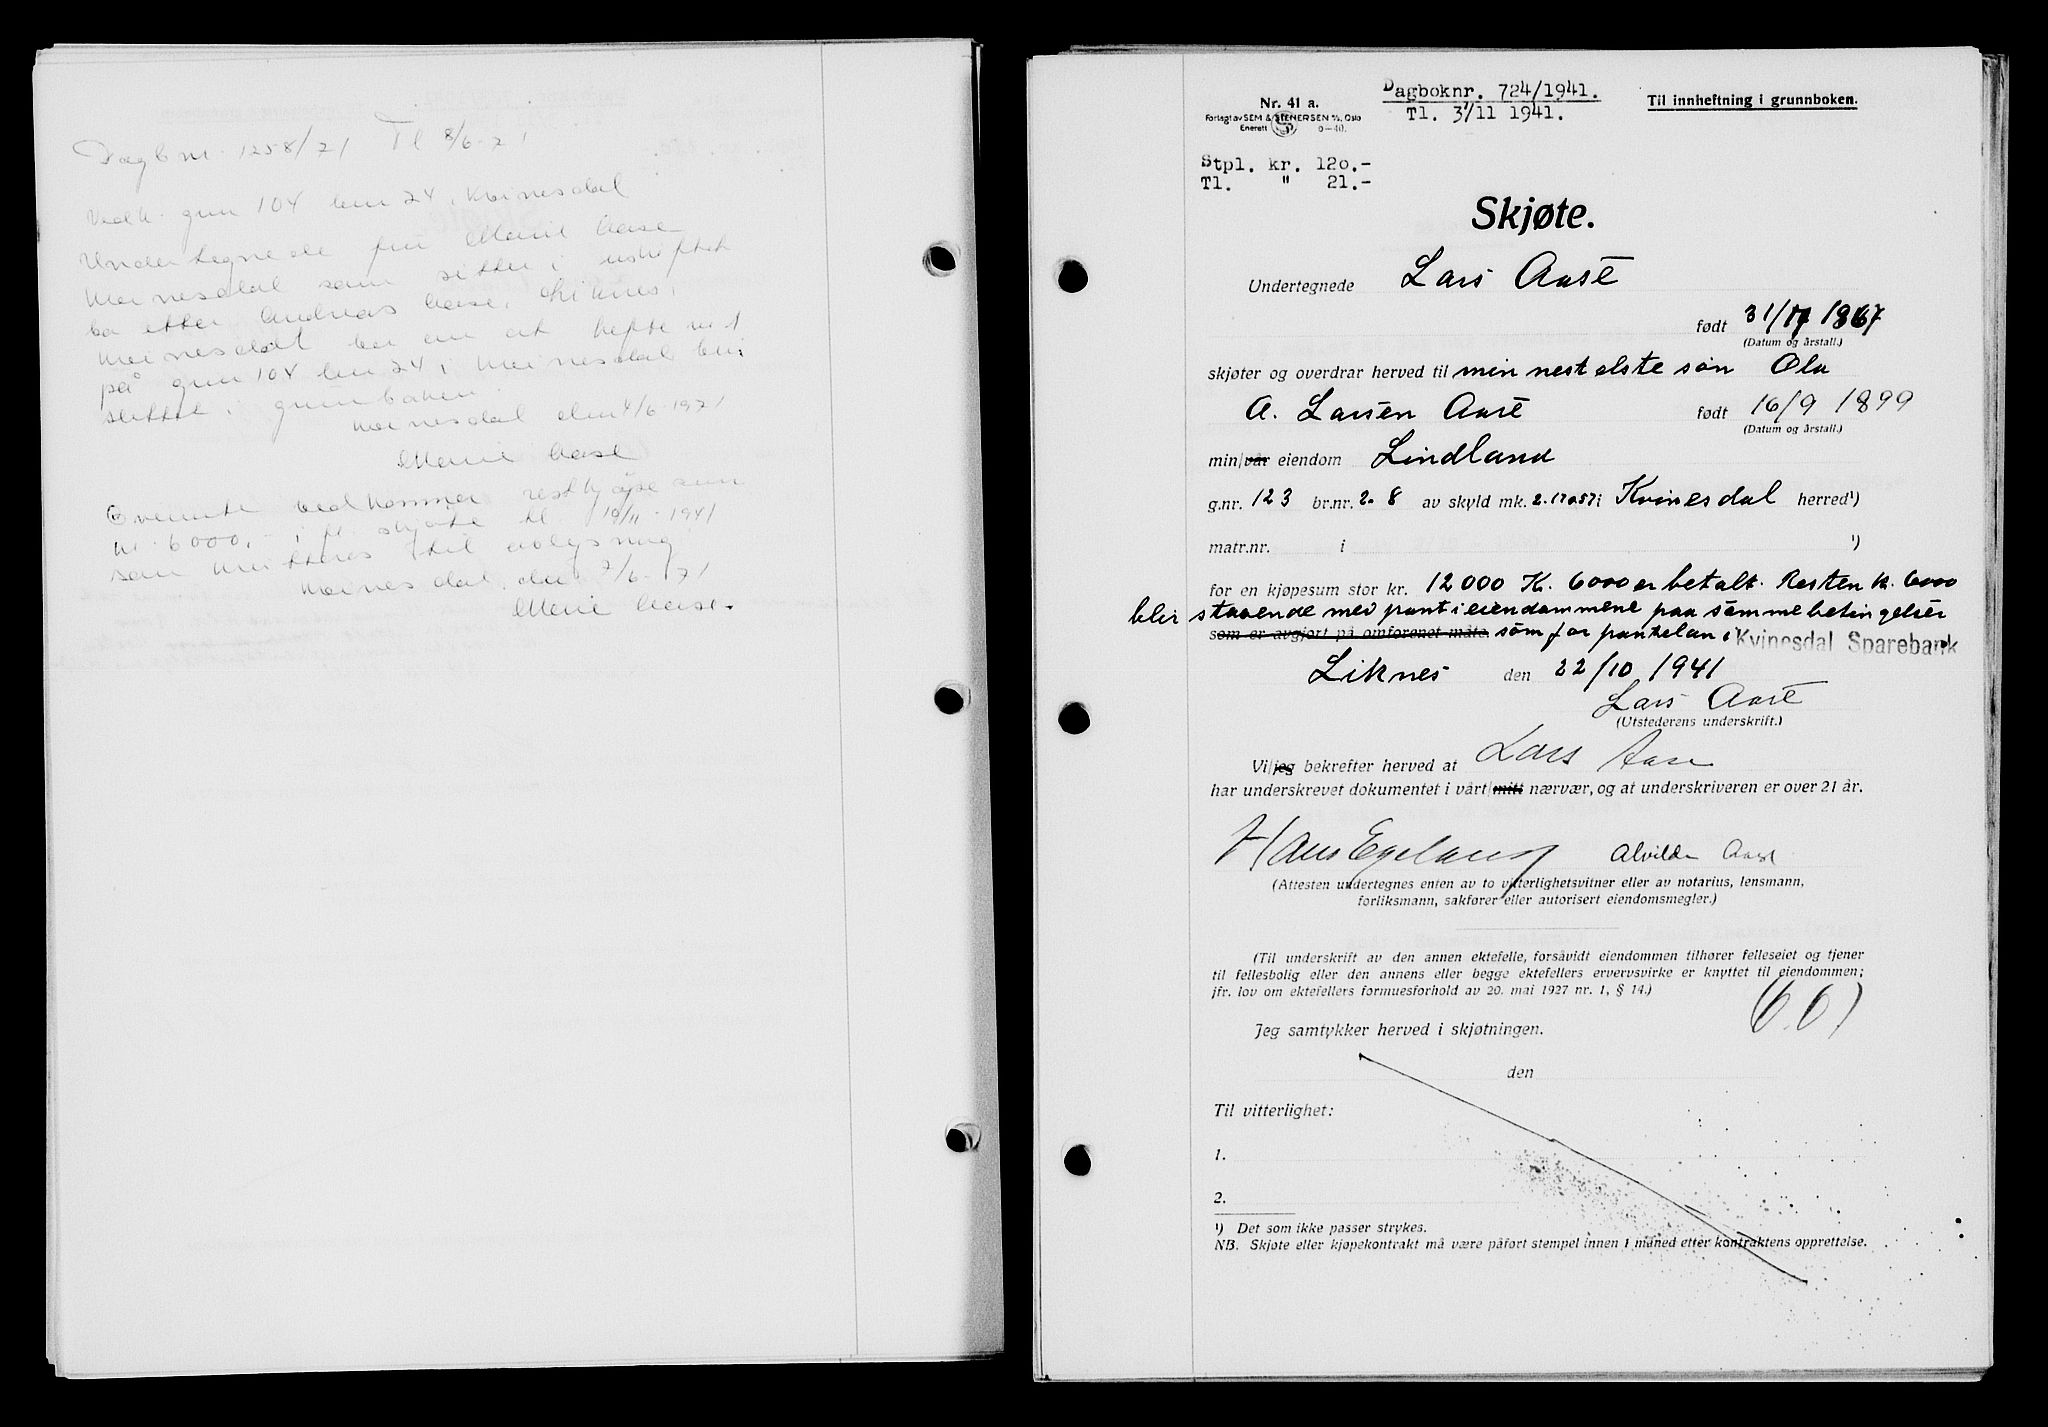 Dagb nr. 1258/71 Tl 8/6-71
Vedk. gnr 104 bnr 24, Kvinesdal
Undertegnede fru Marie Aase
Kvinesdal som sitter i uskiftet
bo etter Andreas Aase, Liknes,
Kvinesdal ber om at heftet
på gnr 104 bnr 24 i Kvinesdal blir
slettet i grunnboken.
Kvinesdal den 4/6-1971
Marie Aase
vedkommer restkjøpesum
kr. 6000,- i fl. skjøte tl. 19/11-1941
som til avlysning
Kvinesdal, den 7/6-71
Marie Aase.
Nr. 41 a.
Forlagt av SEM & STENERSEN A/S, Oslo
Enerett 9-40.
Dagboknr. 724/1941.
Tl. 3/11 1941.
Til innheftning i grunnboken.
Stpl. kr. 120.-
Tl. " 21.-
Skjøte.
Undertegnede Lars Aase
født 31/ 1867
(Datum og årstall.)
skjøter og overdrar herved til min nest elste søn Ola
A. Larsen Aase født 16/9 1899
(Datum og årstall.)
min/vår eiendom Lindland
g.nr. 123 br.nr. 2. 8 av skyld mk. i Kvinesdal herred¹)
matr.nr. i ¹)
for en kjøpesum stor kr. 12000 K. 6000 er betalt. Resten k. 6000
blir staaende med pant i eiendommene paa somme betingelser
som er avgjort på omforenet måte som for pantelan i Kvinesdal Sparebank
Liknes den 22/10 1941
Lars Aase
(Utstederens underskrift.)
Vi/jeg bekrefter herved at Lars Aase
har underskrevet dokumentet i vårt/mitt nærvær, og at underskriveren er over 21 år.
Hans Egeland Alvilde Aase
(Attesten undertegnes enten av to vitterlighetsvitner eller av notarius, lensmann,
forliksmann, sakfører eller autorisert eiendomsmegler.)
(Til underskrift av den annen ektefelle, forsåvidt eiendommen tilhører felleseiet og tjener
til fellesbolig eller den annens eller begge ektefellers ervervsvirke er knyttet til eiendommen;
jfr. lov om ektefellers formuesforhold av 20. mai 1927 nr. 1, § 14.)
Jeg samtykker herved i skjøtningen.
den
Til vitterlighet:
1.
2.
¹) Det som ikke passer strykes.
NB. Skjøte eller kjøpekontrakt må være påført stempel innen 1 måned etter kontraktens opprettelse.